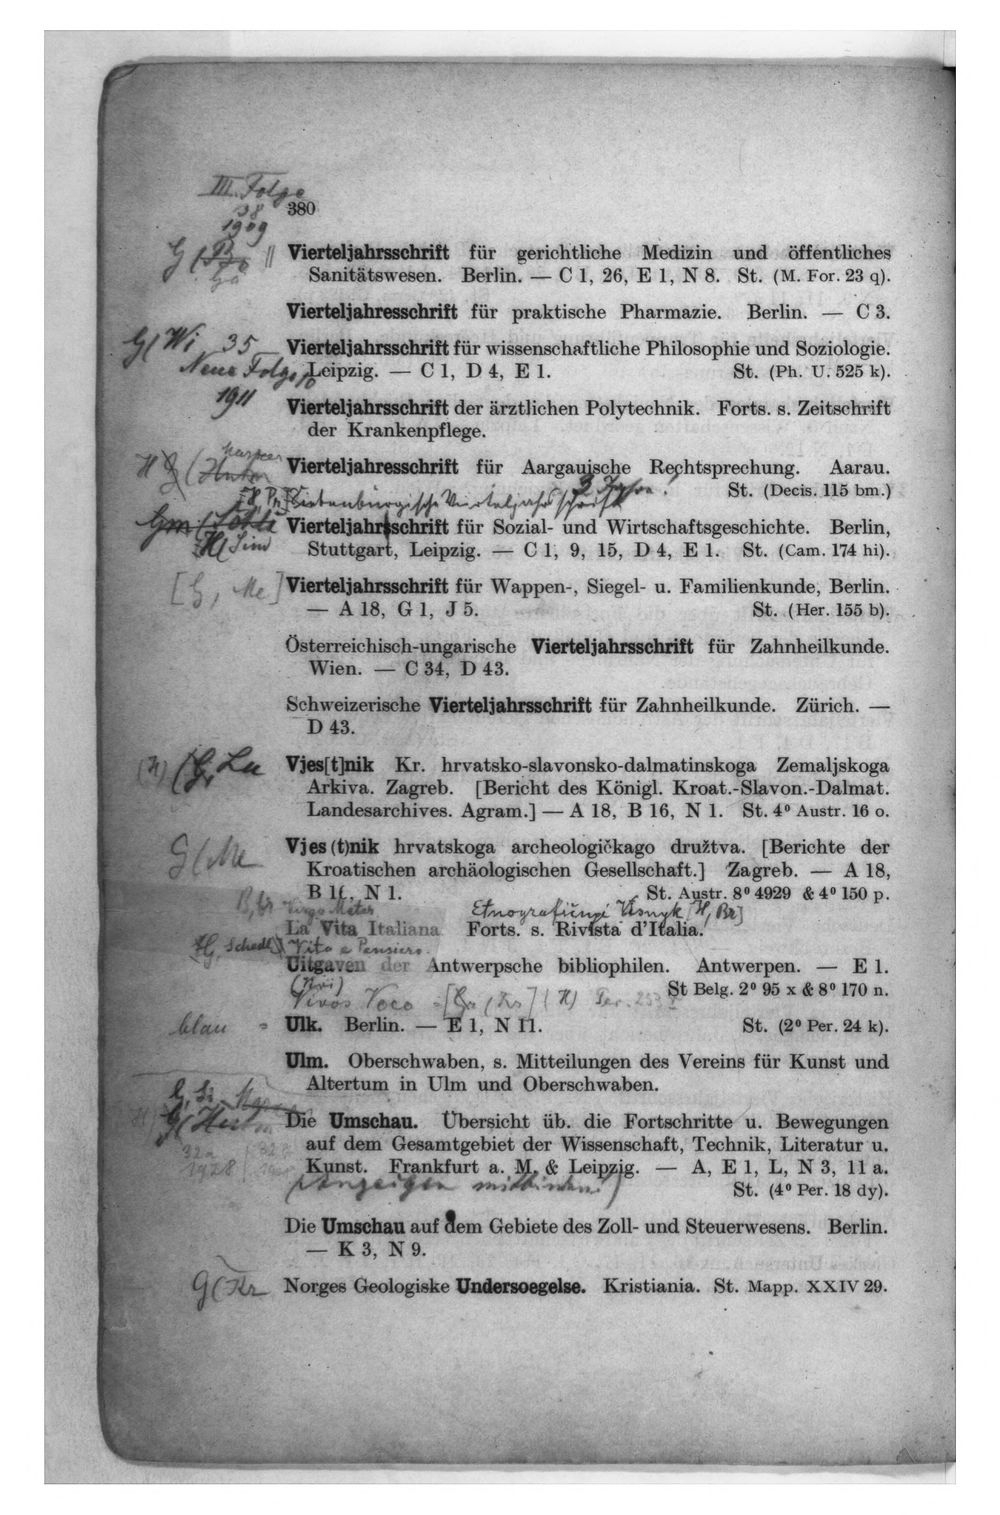 III. Folge
38
380
1909
Vierteljahrsschrift für gerichtliche Medizin und öffentliches
Sanitätswesen. Berlin. — C 1, 26, E 1, N 8. St. (M. For. 23 q).
Vierteljahresschrift für praktische Pharmazie. Berlin. — C 3.
G(Wi 35 Vierteljahrsschrift für wissenschaftliche Philosophie und Soziologie.
Neue Folge Leipzig. — C 1, D 4, E 1. St. (Ph. U. 525 k).
1911
Vierteljahrsschrift der ärztlichen Polytechnik. Forts. s. Zeitschrift
der Krankenpflege.
Vierteljahresschrift für Aargauische Rechtsprechung. Aarau.
St. (Decis. 115 bm.)
Siebenbürgische Vierteljahrsschrift
Vierteljahrsschrift für Sozial- und Wirtschaftsgeschichte. Berlin,
Stuttgart, Leipzig. — C 1, 9, 15, D 4, E 1. St. (Cam. 174 hi).
[G, Me] Vierteljahrsschrift für Wappen-, Siegel- u. Familienkunde, Berlin.
— A 18, G 1, J 5. St. (Her. 155 b).
Österreichisch-ungarische Vierteljahrsschrift für Zahnheilkunde.
Wien. — C 34, D 43.
Schweizerische Vierteljahrsschrift für Zahnheilkunde. Zürich. —
D 43.
Vjes[t]nik Kr. hrvatsko-slavonsko-dalmatinskoga Zemaljskoga
Arkiva. Zagreb. [Bericht des Königl. Kroat.-Slavon.-Dalmat.
Landesarchives. Agram.] — A 18, B 16, N 1. St. 4⁰ Austr. 16 o.
G(Me Vjes(t)nik hrvatskoga archeologičkago družtva. [Berichte der
Kroatischen archäologischen Gesellschaft.] Zagreb. — A 18,
B 16, N 1. St. Austr. 8⁰ 4929 & 4⁰ 150 p.
Virgo Mater Etnografičnyi Visnyk [H, Br]
La Vita Italiana Forts. s. Rivista d'Italia.
Vita e Pensiero.
Uitgaven der Antwerpsche bibliophilen. Antwerpen. — E 1.
St Belg. 2⁰ 95 x & 8⁰ 170 n.
Vivos Voco
blau = Ulk. Berlin. — E 1, N 11. St. (2⁰ Per. 24 k).
Ulm. Oberschwaben, s. Mitteilungen des Vereins für Kunst und
Altertum in Ulm und Oberschwaben.
Die Umschau. Übersicht üb. die Fortschritte u. Bewegungen
auf dem Gesamtgebiet der Wissenschaft, Technik, Literatur u.
32a
1928 Kunst. Frankfurt a. M. & Leipzig. — A, E 1, L, N 3, 11 a.
(Anzeigen mitbinden!) St. (4⁰ Per. 18 dy).
Die Umschau auf dem Gebiete des Zoll- und Steuerwesens. Berlin.
— K 3, N 9.
G(Kr Norges Geologiske Undersoegelse. Kristiania. St. Mapp. XXIV 29.